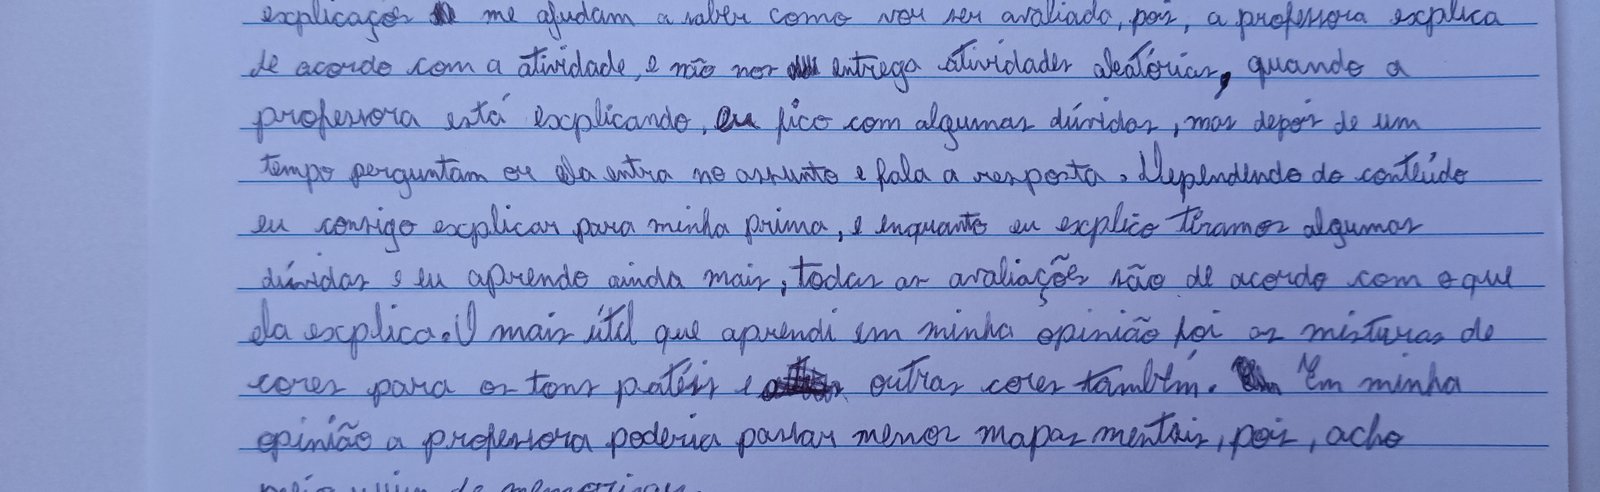 explicações me ajudam a saber como vou ser avaliado, pois, a professora explica
de acordo com a atividade, e não nos entrega atividades aleatórias, quando a
professora está explicando, eu fico com algumas dúvidas, mas depois de um
tempo perguntam ou ela entra no assunto e fala a resposta. Dependendo do conteúdo
eu consigo explicar para minha prima, e enquanto eu explico tiramos algumas
dúvidas e eu aprendo ainda mais, todas as avaliações são de acordo com o que
ela explica. O mais útil que aprendi em minha opinião foi as misturas de
cores para os tons patéis e outras cores também. Em minha
opinião a professora poderia passar menos mapas mentais, pois, acho
de memorizar.